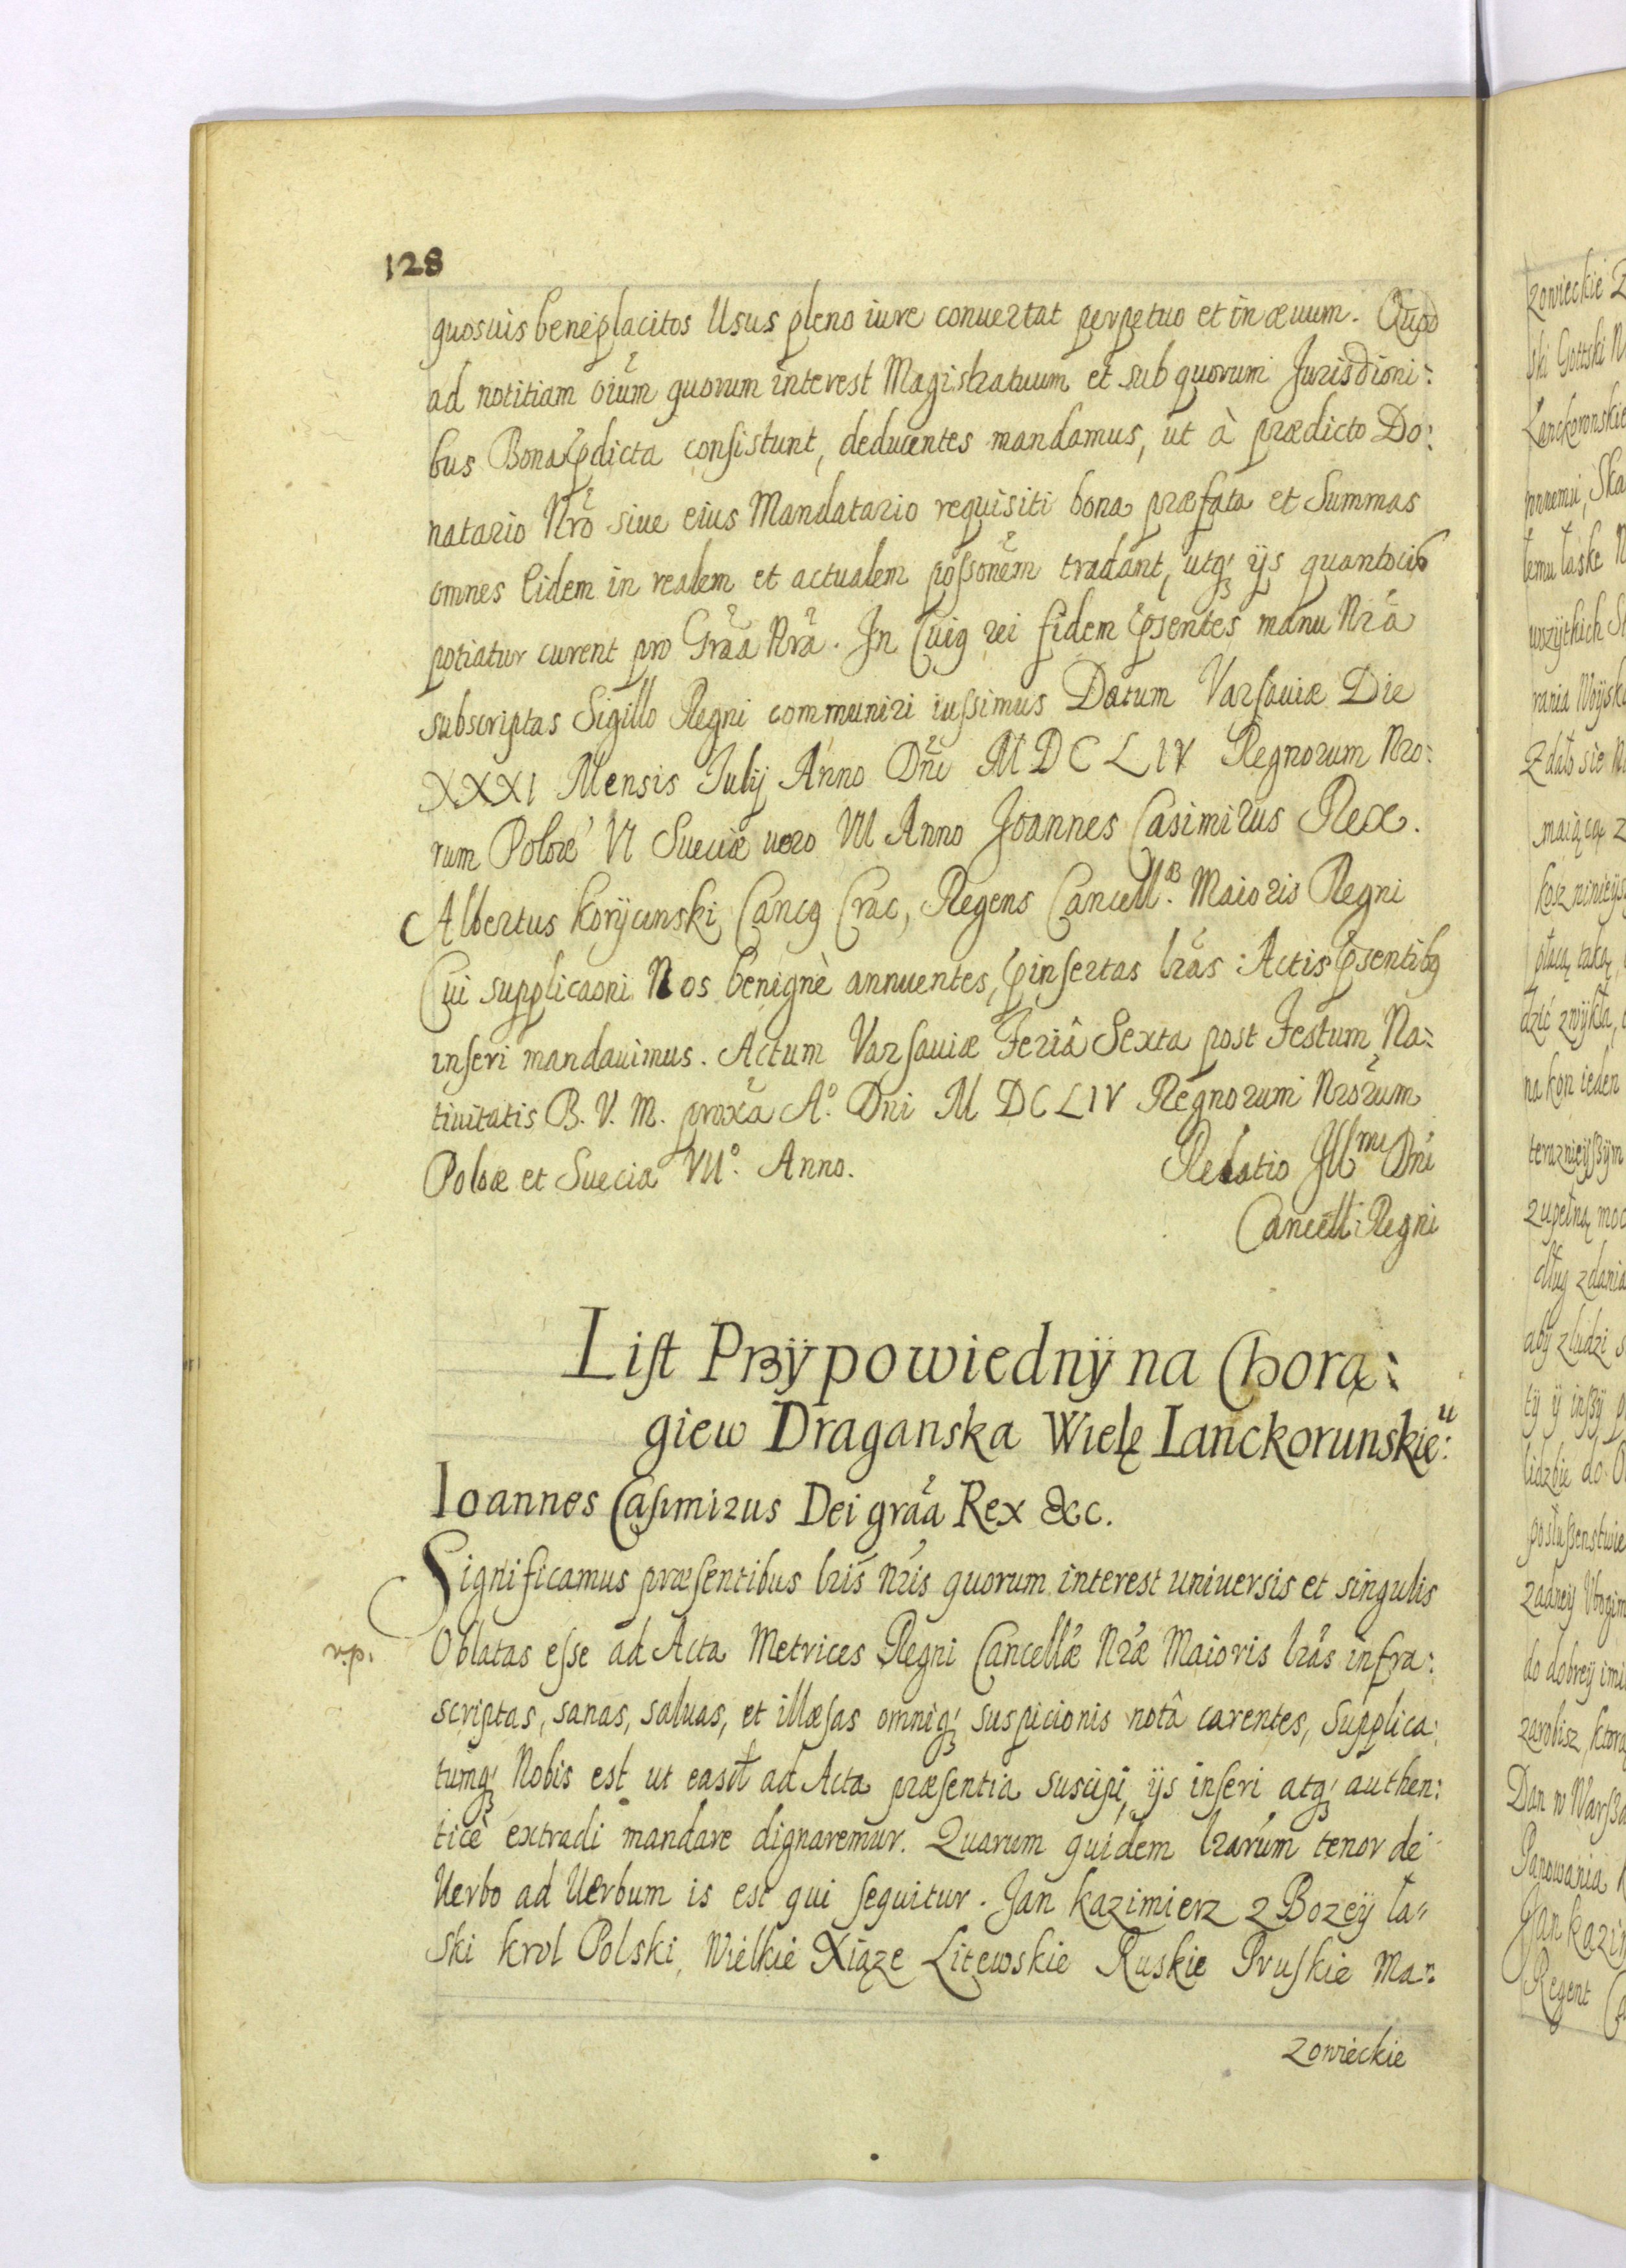 128
quosvis beneplacitos Usus pleno iure conuertat perpetuo et in æuum. Quod
ad notitiam oium̃ quorum interest Magistratuum et sub quorum Jurisdioni:
bus Bona p̃dicta consistunt, deducentes mandamus, ut à prædicto Do:
natario Nr̃o siue eius Mandatario requisiti bona præfata et Summas
omnes Eidem in realem et actualem possonẽm tradant, utq; ijs quantocius
potiatur curent pro Grãa Nrã. In Cuiq rei fidem p̃sentes manu Nrã
subscriptas Sigillo Regni communiri iussimus Datum Varsauiæ Die
XXXI Mensis Julij Anno Dñi M D C L I V Regnorum Nro:
rum Poloæ VI Sueciæ uero VII Anno Joannes Casimirus Rex.
Albertus Koryciński Cancq Crac, Regens Cancell.æ Maioris Regni
Cui supplicaoni Nos benignè annuentes, p̃insertas lrãs Actis p̃sentibq
inseri mandauimus. Actum Varsauiæ Feriâ Sexta post Festum Na:
tiuitatis B. V. M. proxã A.° Dni M DC LIV Regnorum Nrorũm
Poloæ et Sueciæ VII.° Anno.
Relatio Illmi Dñi
Cancell: Regni
List Przÿpowiednÿ na Chorą:
giew Draganska Wielę Lanckorunskie:u
Ioannes Casimirus Dei grãa Rex &c.
Significamus præsentibus lris̃ nris̃ quorum interest uniuersis et singulis
v.p.
Oblatas esse ad Acta Metrices Regni Cancellæ Nræ Maioris lrãs infra:
scriptas, sanas, saluas, et illæsas omniq; suspicionis notâ carentes, Supplica:
tumq; Nobis est ut easd̃ ad Acta præsentia suscipi, ijs inseri atq; authen:
ticè extradi mandare dignaremur. Quarum quidem lrarũm tenor de
Uerbo ad Uerbum is est qui sequitur. Jan Kazimierz z Bozeÿ ła"
ski Krol Polski, Wielkie Xiąze Litewskie Ruskie Pruskie Ma:
zowieckie